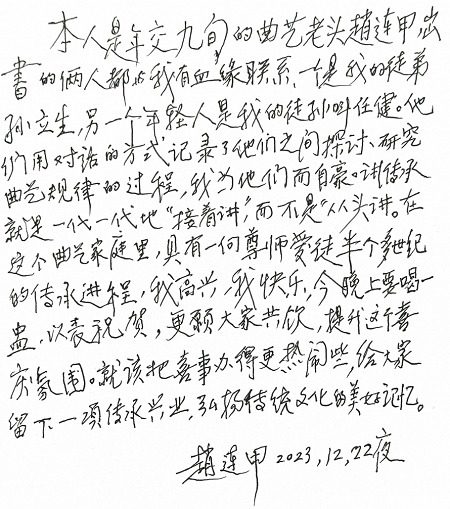 本人是年交九旬的曲艺老头趙连甲,出
書的俩人都与我有血缘联系,一是我的徒弟
孙立生,另一个年轻人是我的徒孙叫任健。他
们用对话的方式记录了他们之间探讨、研究
曲艺规律的过程,我为他们而自豪。讲传承
就是一代一代地“接着讲”,而不是“从头讲。在
这个曲艺家庭里,具有一何尊师爱徒半个多世纪
的传承进程,我高兴,我快乐,今晚上要喝一
盅,以表祝贺,更願大家共饮,提升这个喜
庆氛围。就该把喜事办得更热闹些,给大家
留下一項传承兴业,弘扬传统文化的美好记忆。
趙连甲 2023,12,22夜